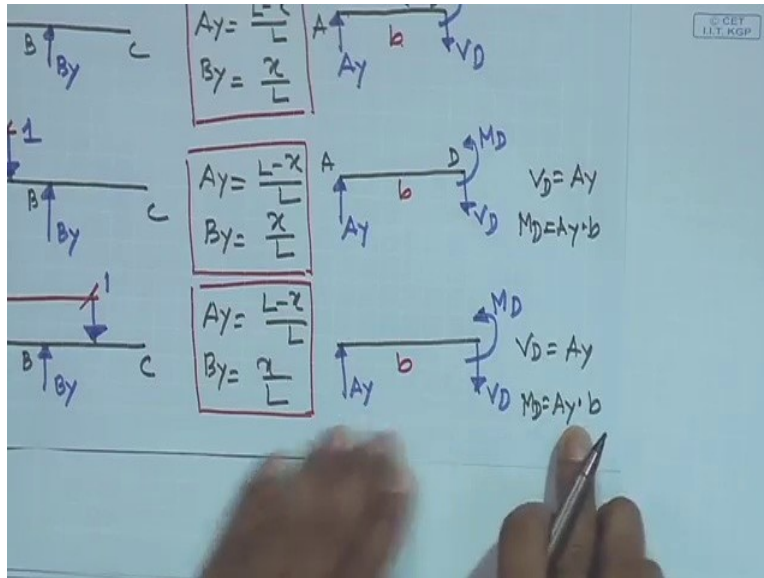 © CET
I.I.T. KGP
B By C
Ay = L-x/L
By = x/L
A Ay b VD
1
B By C
Ay = L-x/L
By = x/L
A D MD
Ay b VD
VD = Ay
MD = Ay·b
1
B By C
Ay = L-x/L
By = x/L
MD
Ay b VD
VD = Ay
MD = Ay·b